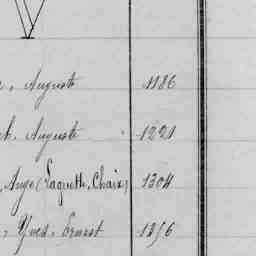 , Auguste 1186
h, Auguste 1221
, Ange (Laguette, Chaix) 1304
, Yves, Ernest 1356